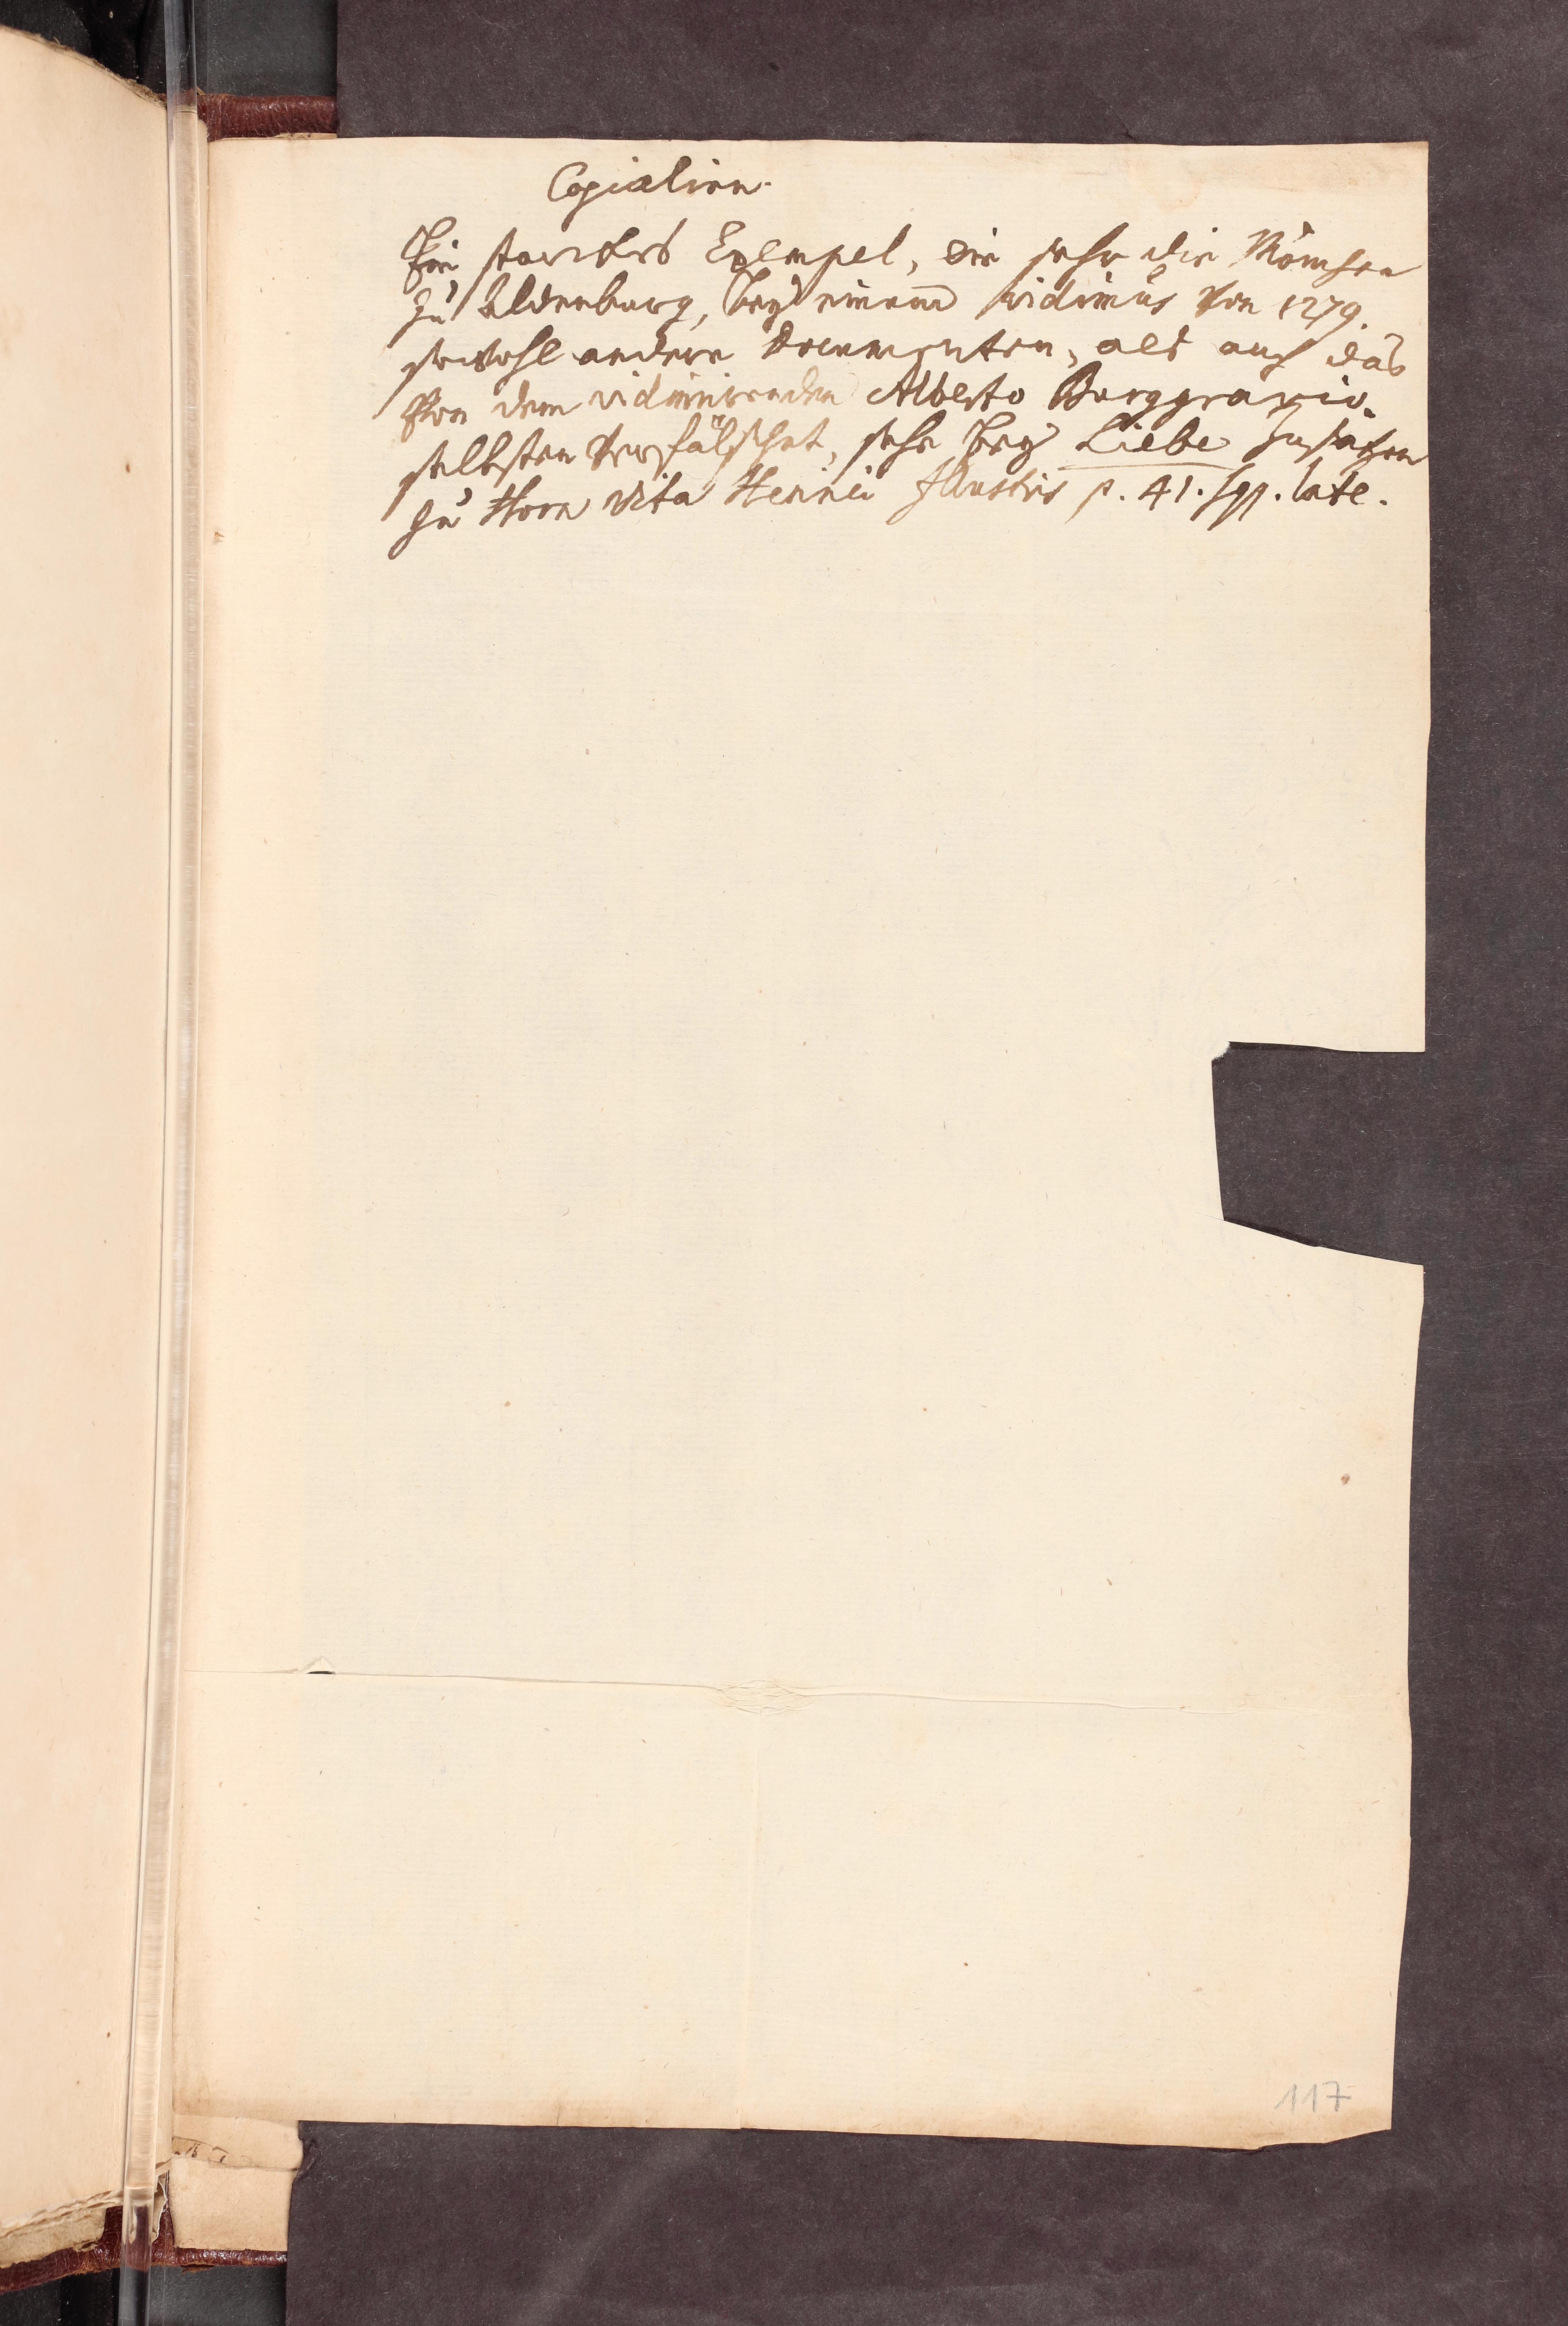 Copialien.
Ein starckes Exempel, wie sehr die Mönchen
zu Altenburg, bey einem vidimus von 1279.
sowohl andere documenten, als auch das
von dem vidimirenden Alberto Burggravio
selbsten verfälschet, sehe bey Liebe Zusätzen
zu Horn Vita Henrici Illustris p. 41. sqq. late.
117